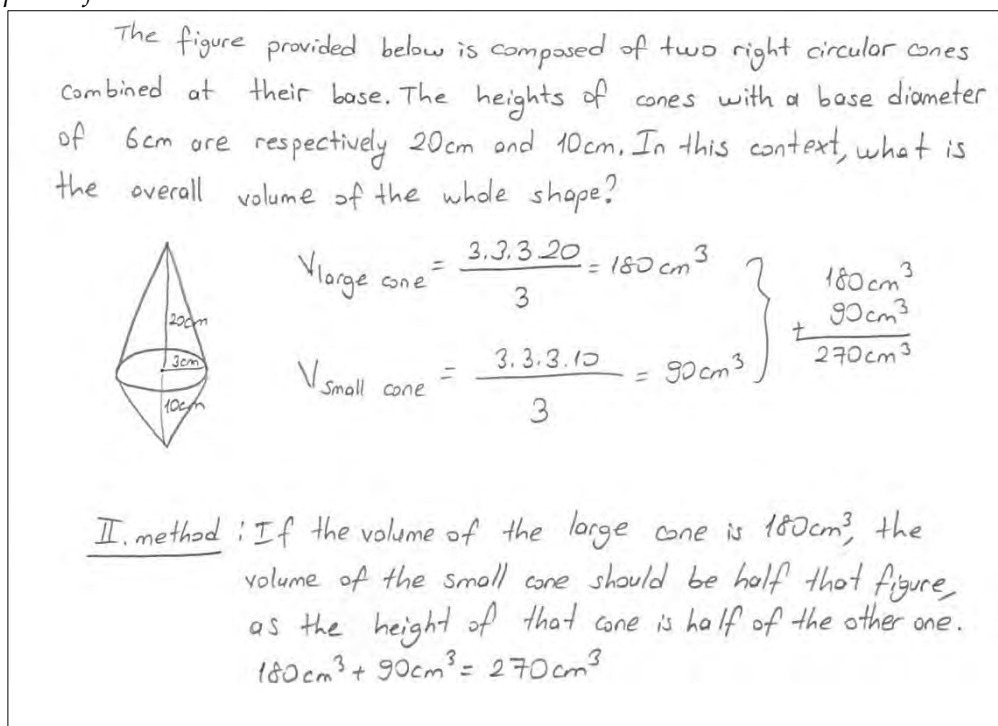 The figure provided below is composed of two right circular cones
combined at their base. The heights of cones with a base diameter
of 6cm are respectively 20cm and 10cm. In this context, what is
the overall volume of the whole shape?
V large cone = 3.3.3.20 / 3 = 180 cm³
180 cm³
+ 90 cm³
270 cm³
20cm
3cm
10cm
V small cone = 3.3.3.10 / 3 = 90 cm³
II. method : If the volume of the large cone is 180cm³, the
volume of the small cone should be half that figure,
as the height of that cone is half of the other one.
180 cm³ + 90 cm³ = 270 cm³